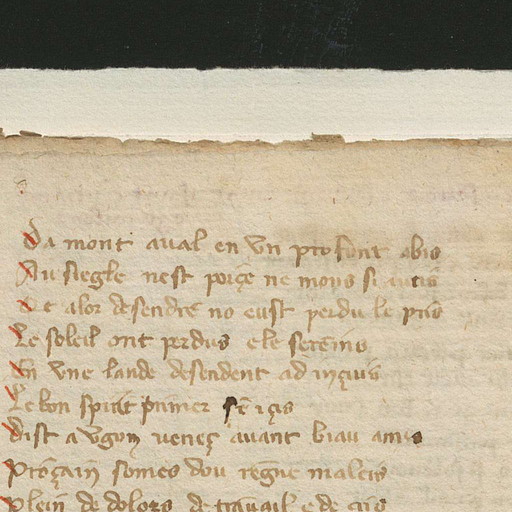 Da mont aval en vn profont abis
Au siegle nest porçe ne mons si antis
De alor desendre no eust perdu le pris
Le soleil ont perdus e le sereins
En vne lande desendent ad inçuis
Le bon spirit primer
Dist a vgon veneç avant biau amis
Proçain somes dou regne maleis
Plein de dolors de travail e de cris